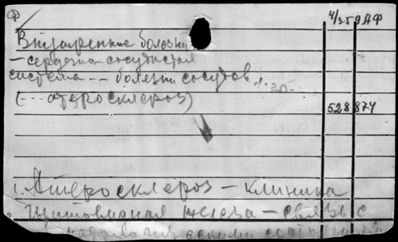 Ф
4/359АФ
Внутренние болезни
– сердечно сосудистая
система -- болезни сосудов
(-- атеросклероз)
528 874
1. Атеросклероз – клиника
Щитовидная железа – связь с